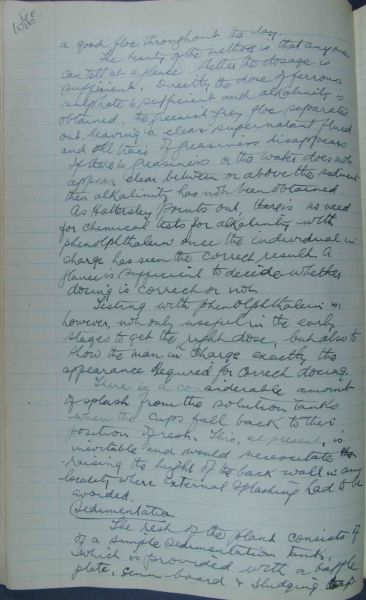 a good floc throughout the day.
The beauty of the method is that anyone
can tell at a glance whether the dosage is
sufficient. Directly the dose of ferrous
sulphate is sufficient and alkalinity is
obtained, the greenish grey floc separates
out leaving a clear supernatant fluid
and all trace of greasiness disappears.
If there is greasiness or the water does not
appear clear between or above the sediment
then alkalinity has not been obtained.
As Hattersley points out, there is no need
for chemical tests for alkalinity with
phenolphthalein once the individual in
charge has seen the correct result. A
glance is sufficient to decide whether
dosing is correct or not.
Testing with phenolphthalein is,
however, not only useful in the early
stages to get the right dose, but also to
show the man in charge exactly the
appearance required for correct dosing.
There is a considerable amount
of splash from the solution tanks
when the cups fall back to their
position of rest. This, at present, is
inevitable and would necessitate the
raising the height of the back wall in any
locality where external splashing had to be
avoided.
Sedimentation
The rest of the plant consists of
of a simple sedimentation tank,
which is provided with a baffle
plate, scum board & sludging